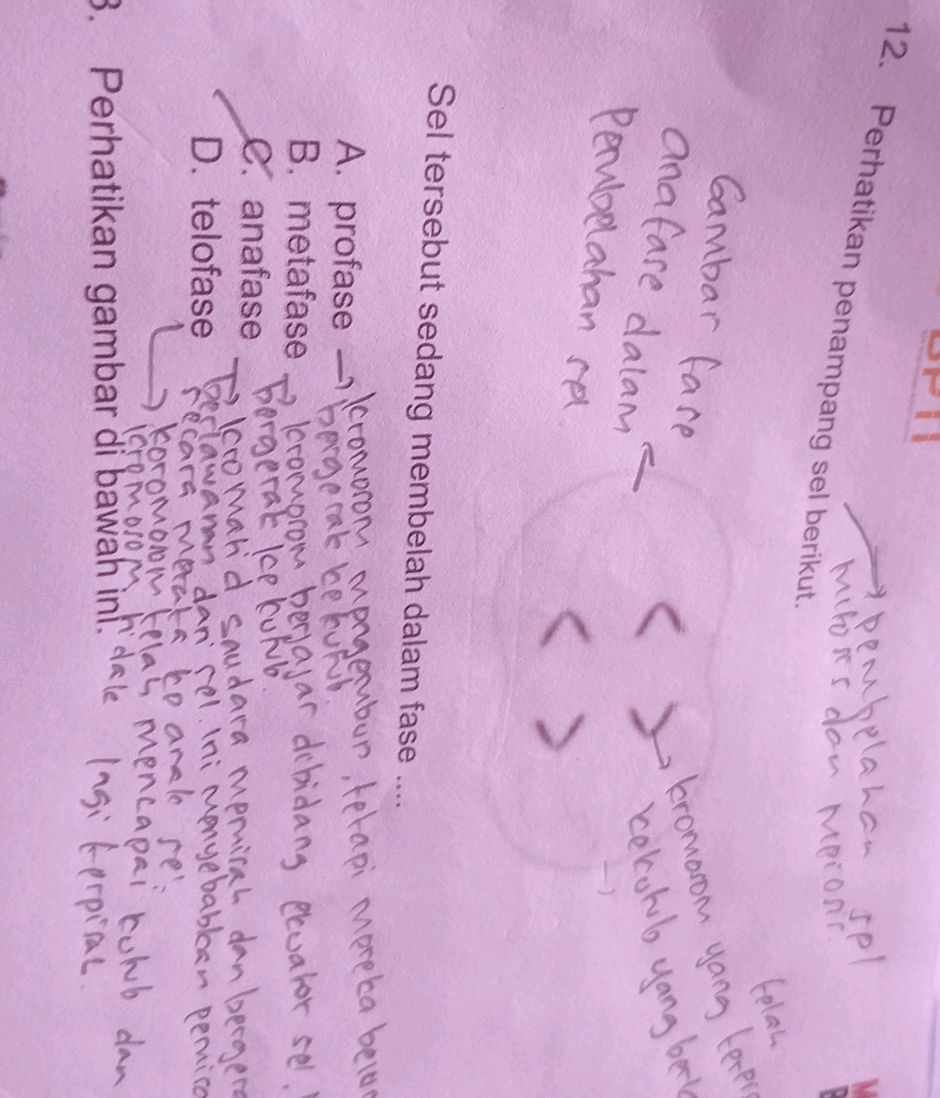 12. Perhatikan penampang sel berikut.
pembelahan sel
mitosis dan meiosis
Gambar fase
anafase dalam
Pembelahan sel
telah
kromosom yang
kekutub yang
Sel tersebut sedang membelah dalam fase ....
A. profase → kromosom mengembun, tetapi mereka
bergerak ke kutub.
B. metafase → kromosom berjajar dibidang ekuator sel.
bergerak ke kutub.
C. anafase → kromatid saudara memisah dan
berlawanan dari sel. Ini menyebabkan
secara merata ke anak sel
D. telofase → koromosom telah mencapai kutub dan
kromosom tidak lagi terpisah.
3. Perhatikan gambar di bawah ini.